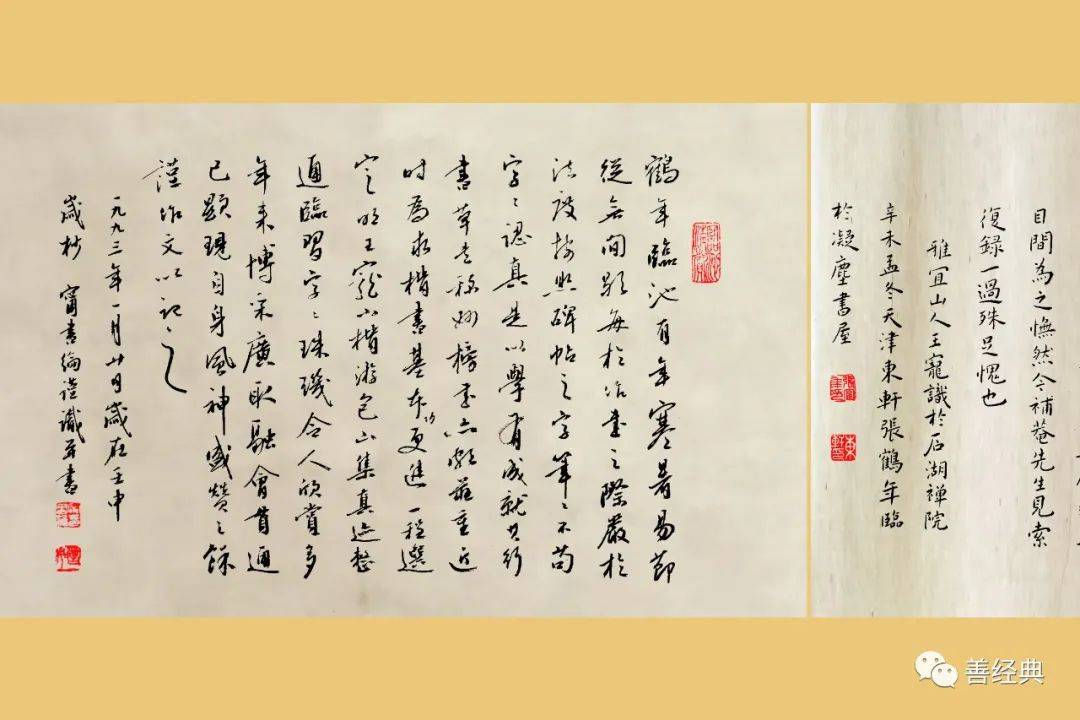 目間為之憮然今補菴先生見索
復録一過殊足愧也
雅宜山人王寵識於石湖禅院
辛未孟冬天津東軒張鶴年臨
於凝塵書屋
鶴年臨池有年寒暑易節
從無間歇每於作書之際嚴於
法度按照碑帖之字筆〻不苟
字〻認真是以學有成就其行
書草書称妙榜書亦頗莊重近
时為求楷書基本功更進一程選
定明王寵小楷游包山集真迹整
通臨習字〻珠璣令人欣賞多
年来博采廣取融會貫通
已顯現自身風神感贊之餘
謹作文以記之
一九九三年一月廿日歲在壬申
歲杪 甯書綸謹識并書
善经典